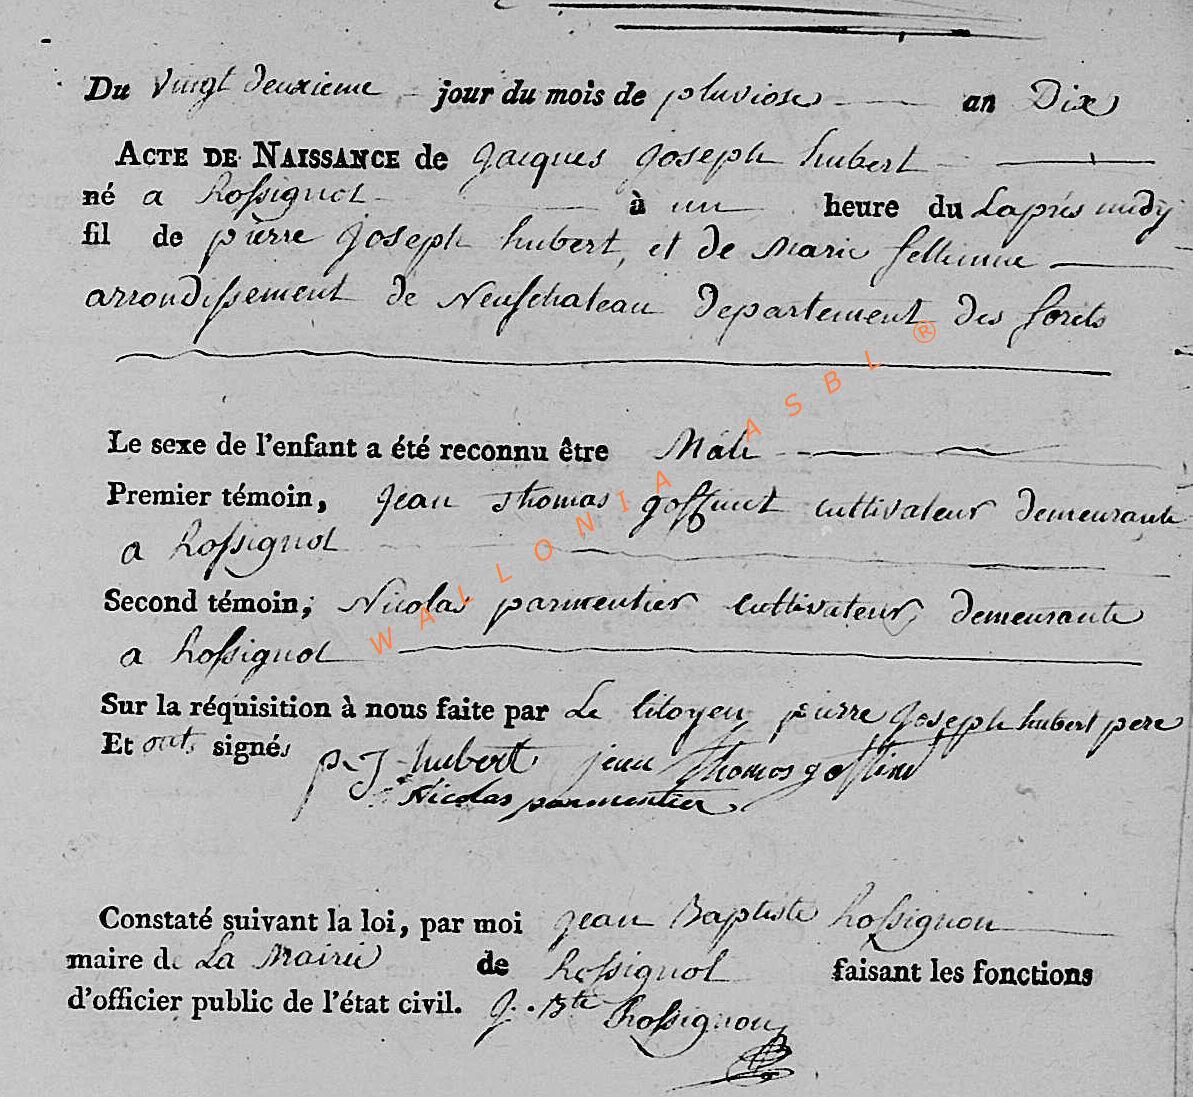 Du Vingt deuxieme jour du mois de pluviose an Dix
ACTE DE NAISSANCE de Jacques Joseph hubert
né a Rossignol à un heure du Laprés midÿ
fil de pierre Joseph hubert, et de Marie
arrondissement de Neufchateau departement des forets
Le sexe de l'enfant a été reconnu être Mâle
Premier témoin, Jean Thomas goffinet cultivateur demeurante
a Rossignol
Second témoin, Nicolas parmentier cultivateur, demeurante
a Rossignol
Sur la réquisition à nous faite par Le Citoyen pierre Joseph hubert pere
Et ont signés p J hubert jean Thomas goffinet
Nicolas parmentier
Constaté suivant la loi, par moi Jean Baptiste Rossignon
maire de La Mairie de Rossignol faisant les fonctions
d'officier public de l'état civil. J. Bte Rossignon
WALLONIA ASBL ®